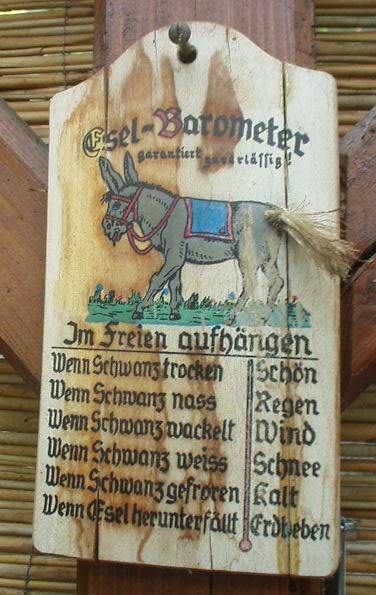 Esel-Barometer
garantiert zuverlässig!
Im Freien aufhängen
Wenn Schwanz trocken Schön
Wenn Schwanz nass Regen
Wenn Schwanz wackelt Wind
Wenn Schwanz weiss Schnee
Wenn Schwanz gefroren Kalt
Wenn Esel herunterfällt Erdbeben